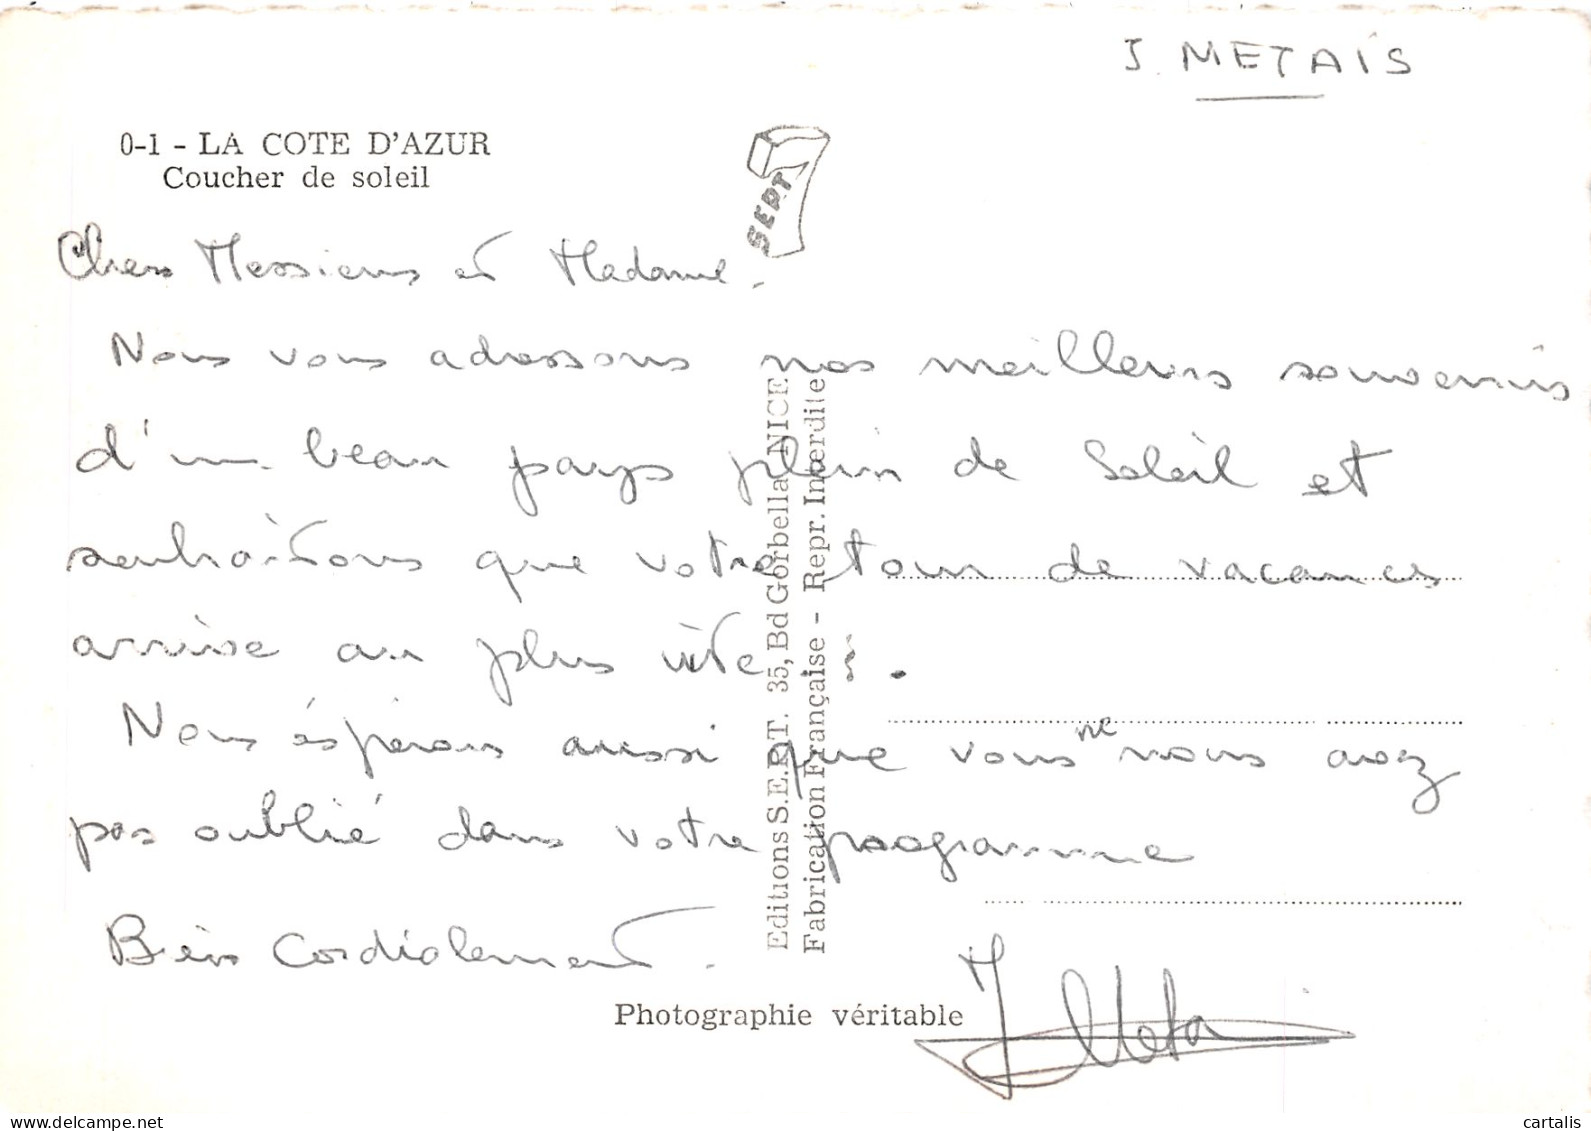 J. METAIS
0-1 - LA COTE D'AZUR
Coucher de soleil
SERT
Chers Messieurs et Madame.
Nous vous adressons nos meilleurs souvenirs
d'un beau pays plein de Soleil et
souhaitons que votre tour de vacances
arrive au plus vite !.
Nous éspérons aussi que vous ne nous avez
pas oublié dans votre programme
Bien Cordialement.
J Meta
Editions S.E.R.T. 35, Bd Gorbella NICE
Fabrication Française - Repr. Interdite
Photographie véritable
delcampe.net
cartalis